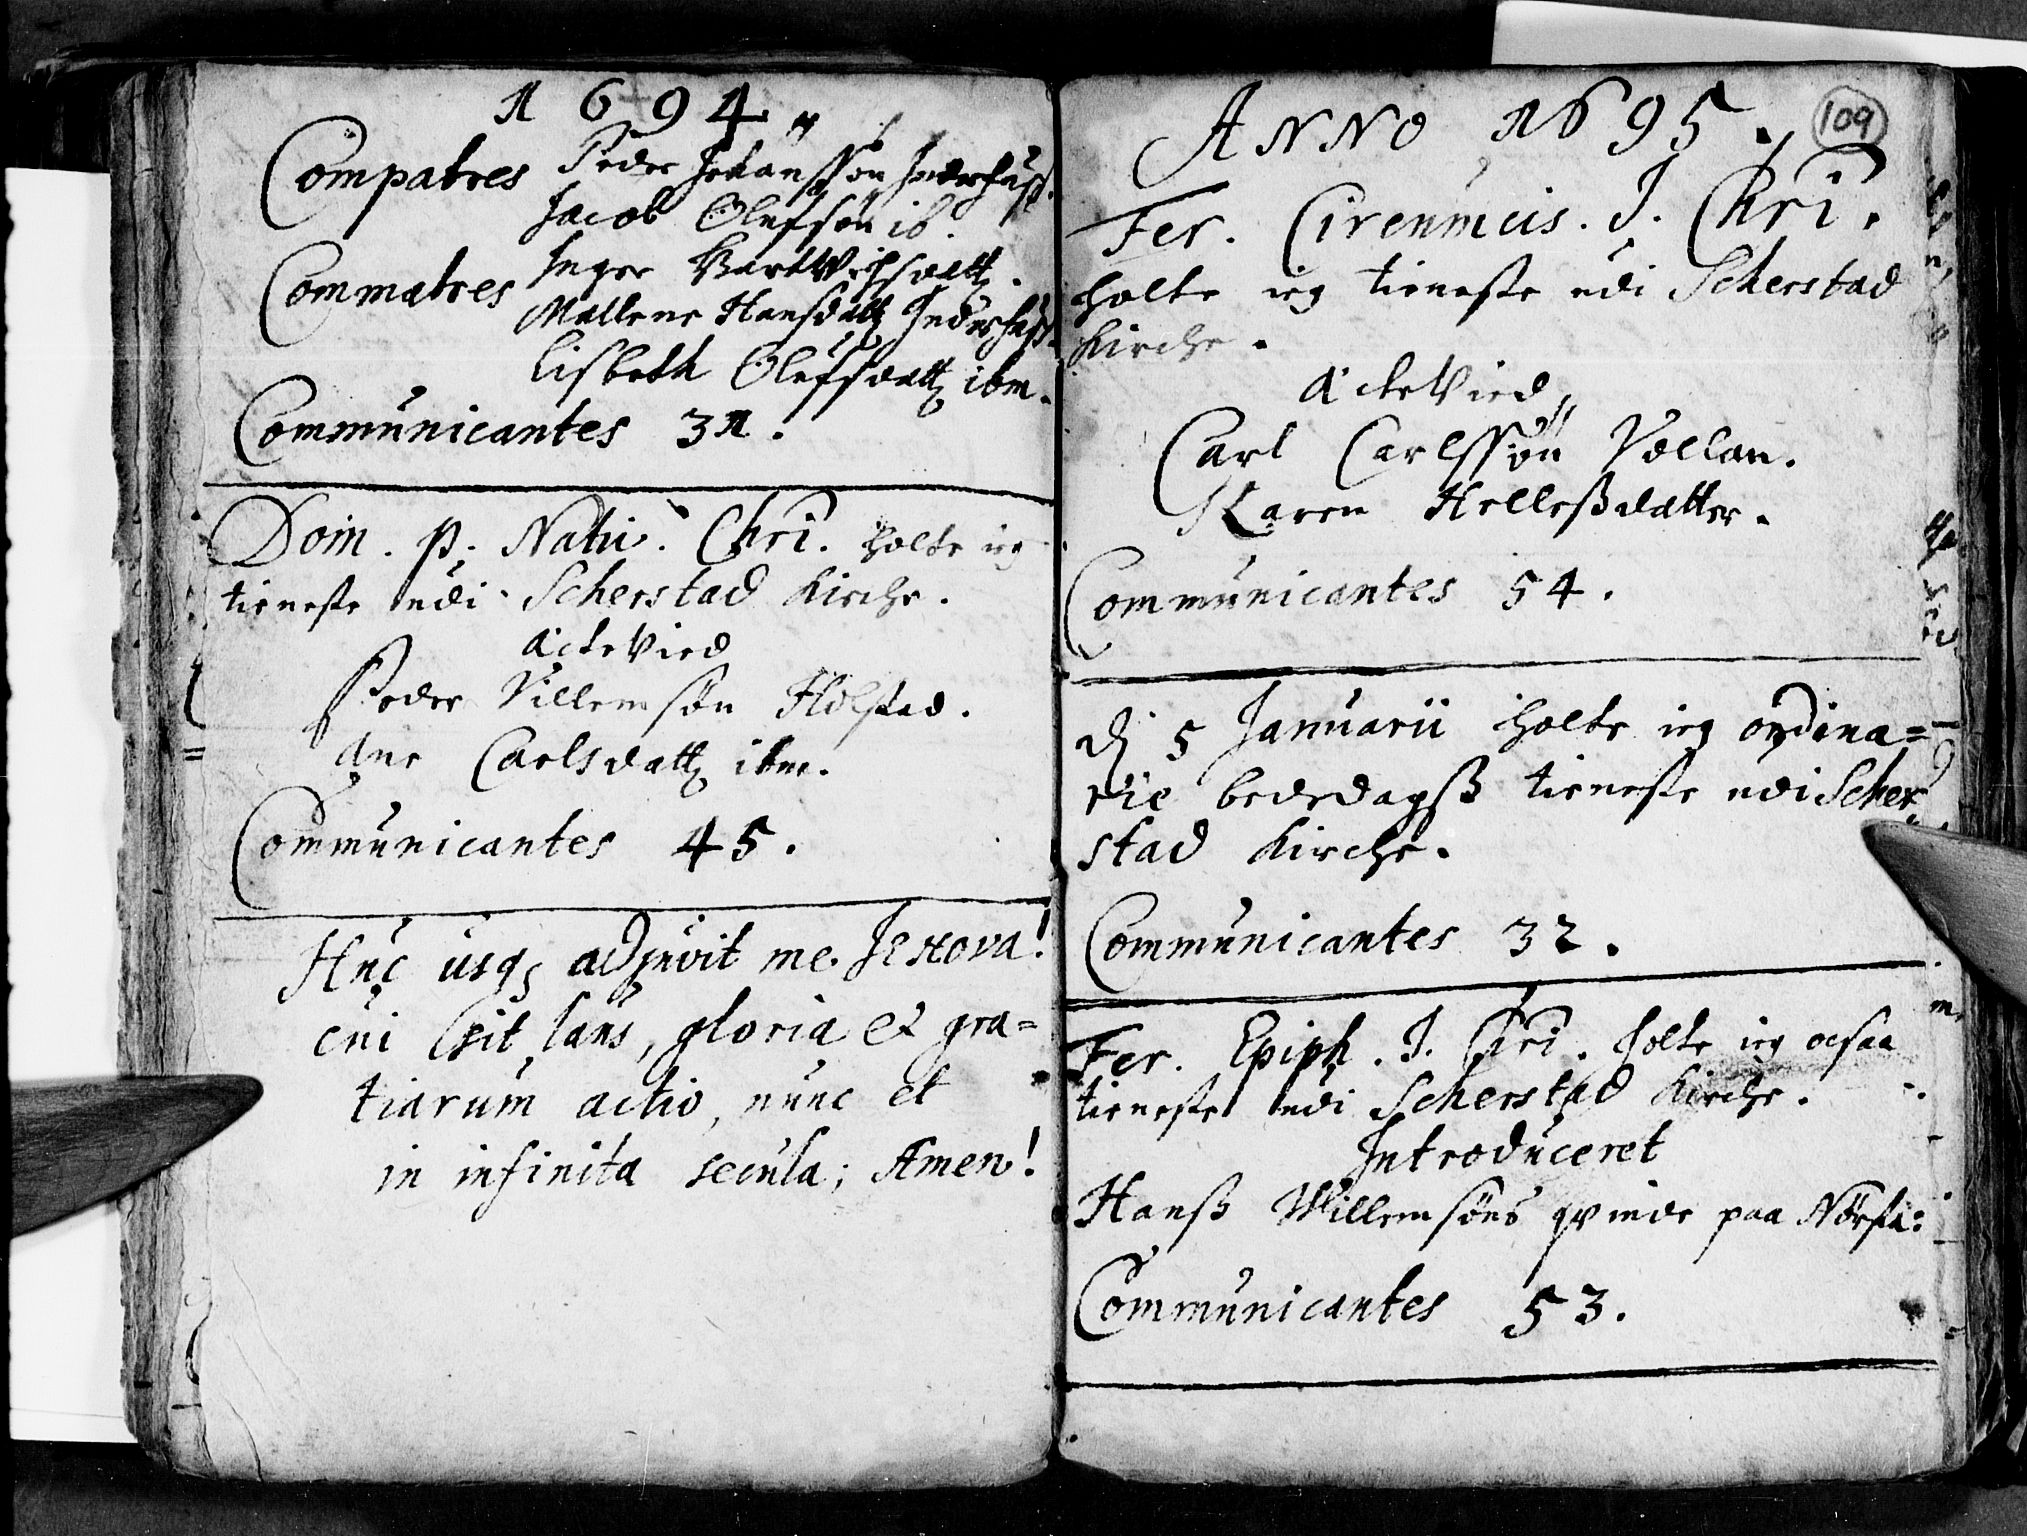 1694.
Compatres Peder Johansson Inderhuss.
Jacob Olufsøn ib.
Commatres Inger Bartwichsdatt.
Mallene Hansdatt Inderhuss.
Lisbeth Olufsdatt ibm.
Communicantes 31.
Dom. p. Nativ. Chri. holte ieg
tieneste udi Scherstad Kirche.
ActeVied
Peder Villemsøn Holstad.
Ane Carlsdatt ibm.
Communicantes 45.
Huc usq, adjuvit me Jehova!
cui sit laus, gloria et gra=
tiarum actio, nunc et
in infinita secula; Amen!
ANNO 1695.
109
Fer. Circumcis. J. Chri.
holte ieg tieneste udi Scherstad
Kirche.
ActeVied,
Carl Carlssøn Vollan.
Karen Hellessdatter.
Communicantes 54.
d 5 Januarii holte ieg ordina=
rie bededagss tieneste udi Scher
stad Kirche.
Communicantes 32.
Fer. Epiph. J. Chri. holte ieg ocsaa
tieneste udi Scherstad Kirche.
Introduceret
Hanss Willemsøns qvinde paa Nörsta:
Communicantes 53.